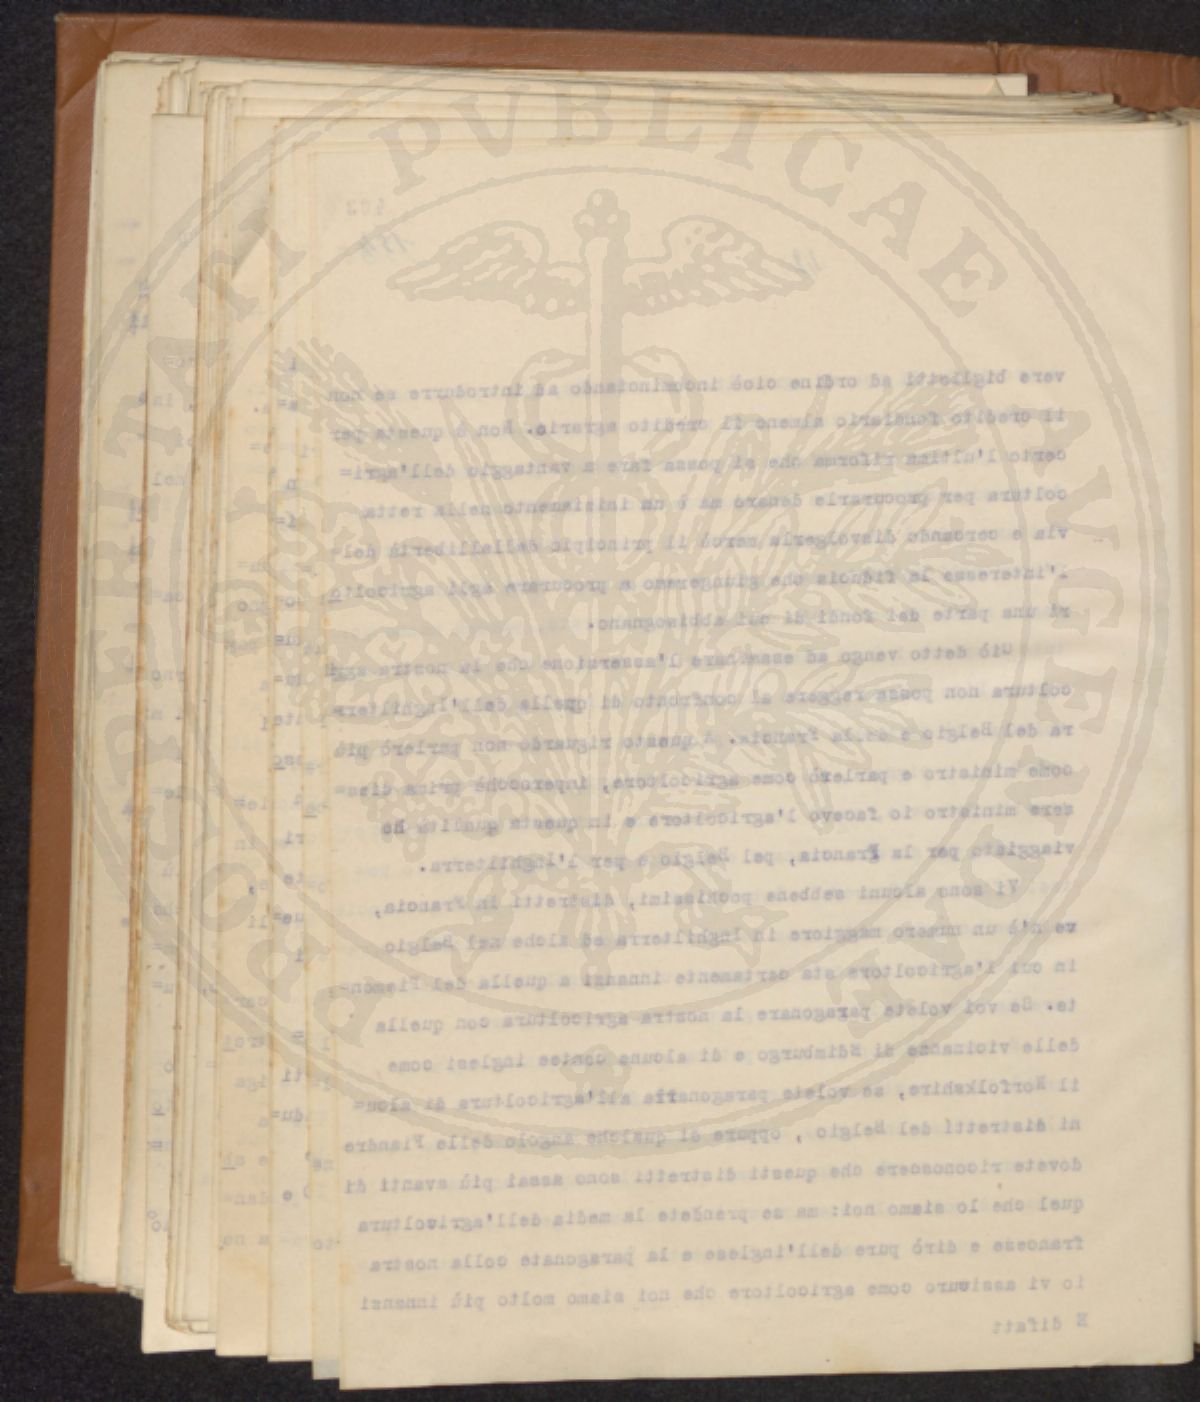 PROSPERITATI PVBLICAE AVGENDAE
403
154
vere biglietti ad ordine cioè incominciando ad introdurre se non
il credito fondiario almeno il credito agrario. Non è questa per
certo l'ultima riforma che si possa fare a vantaggio dell'agri=
coltura per procurarle denaro ma è un iniziamento nella retta
via e cercando disvolgerla mercè il principio dellalibertà del=
l'interesse la fiducia che giungeremo a procurare agli agricolto
ri una parte dei fondi di cui abbisognano.
Ciò detto vengo ad esaminare l'asserzione che la nostra agri
coltura non possa reggere al confronto di quella dell'Inghilter=
ra del Belgio e della Francia. A questo riguardo non parlerò più
come ministro e parlerò come agricoltore, imperocchè prima dies=
sere ministro io facevo l'agricoltore e in questa qualità ho
viaggiato per la Francia, pel Belgio e per l'Inghilterra.
Vi sono alcuni sebbene pochissimi, distretti in Francia,
ve n'è un numero maggiore in Inghilterra ed alche nel Belgio
in cui l'agricoltora sta certamente innanzi a quella del Piemon=
te. Se voi volete paragonare la nostra agricoltura con quella
delle vicinanze di Edimburgo e di alcune contee inglesi come
il Norfolkshire, se volete paragonarla all'agricoltura di alcu=
ni distretti del Belgio , oppure di qualche angolo delle Fiandre
dovete riconoscere che questi distretti sono assai più avanti di
quel che lo siamo noi: ma se prendete la media dell'agricoltura
francese e dirò pure dell'inglese e la paragonate colla nostra
io vi assicuro come agricoltore che noi siamo molto più innanzi
E difatt